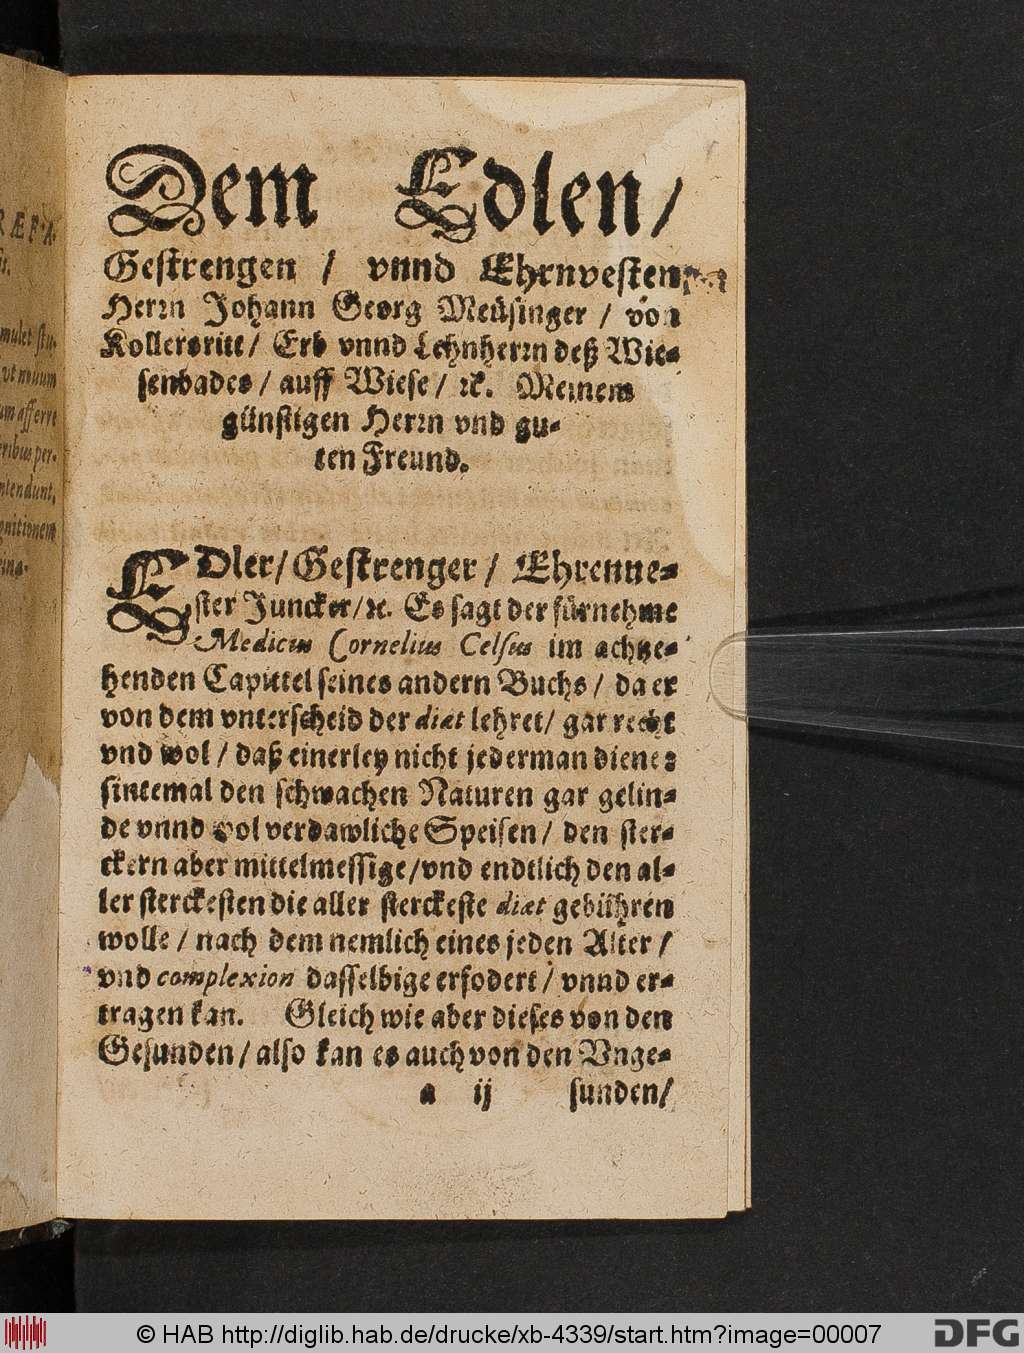 RÆFA-
mulet stu-
vt nouum
um afferre
eribus per-
ntendunt,
gnitionem
Dem Edlen/
Gestrengen / vnnd Ehrnvesten
Herrn Johann Georg Meüsinger / von
Kollersritt/ Erb vnnd Lehnherrn deß Wie-
senbades / auff Wiese / ꝛc. Meinem
günstigen Herrn vnd gu-
ten Freund.
EDler/ Gestrenger / Ehrenue-
ster Juncker/ꝛc. Es sagt der fürnehme
Medicus Cornelius Celsus im achtze-
henden Capittel seines andern Buchs / da er
von dem vnterscheid der diæt lehret/ gar recht
vnd wol / daß einerley nicht jederman diene:
sintemal den schwachen Naturen gar gelin-
de vnnd wol verdawliche Speisen / den ster-
ckern aber mittelmessige/vnd endtlich den al-
ler sterckesten die aller sterckeste diæt gebühren
wolle / nach dem nemlich eines jeden Alter /
vnd complexion dasselbige erfodert / vnnd er-
tragen kan. Gleich wie aber dieses von den
Gesunden / also kan es auch von den Vnge-
a ij sunden/
© HAB http://diglib.hab.de/drucke/xb-4339/start.htm?image=00007
DFG